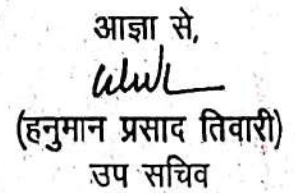 आज्ञा से,
(हनुमान प्रसाद तिवारी)
उप सचिव